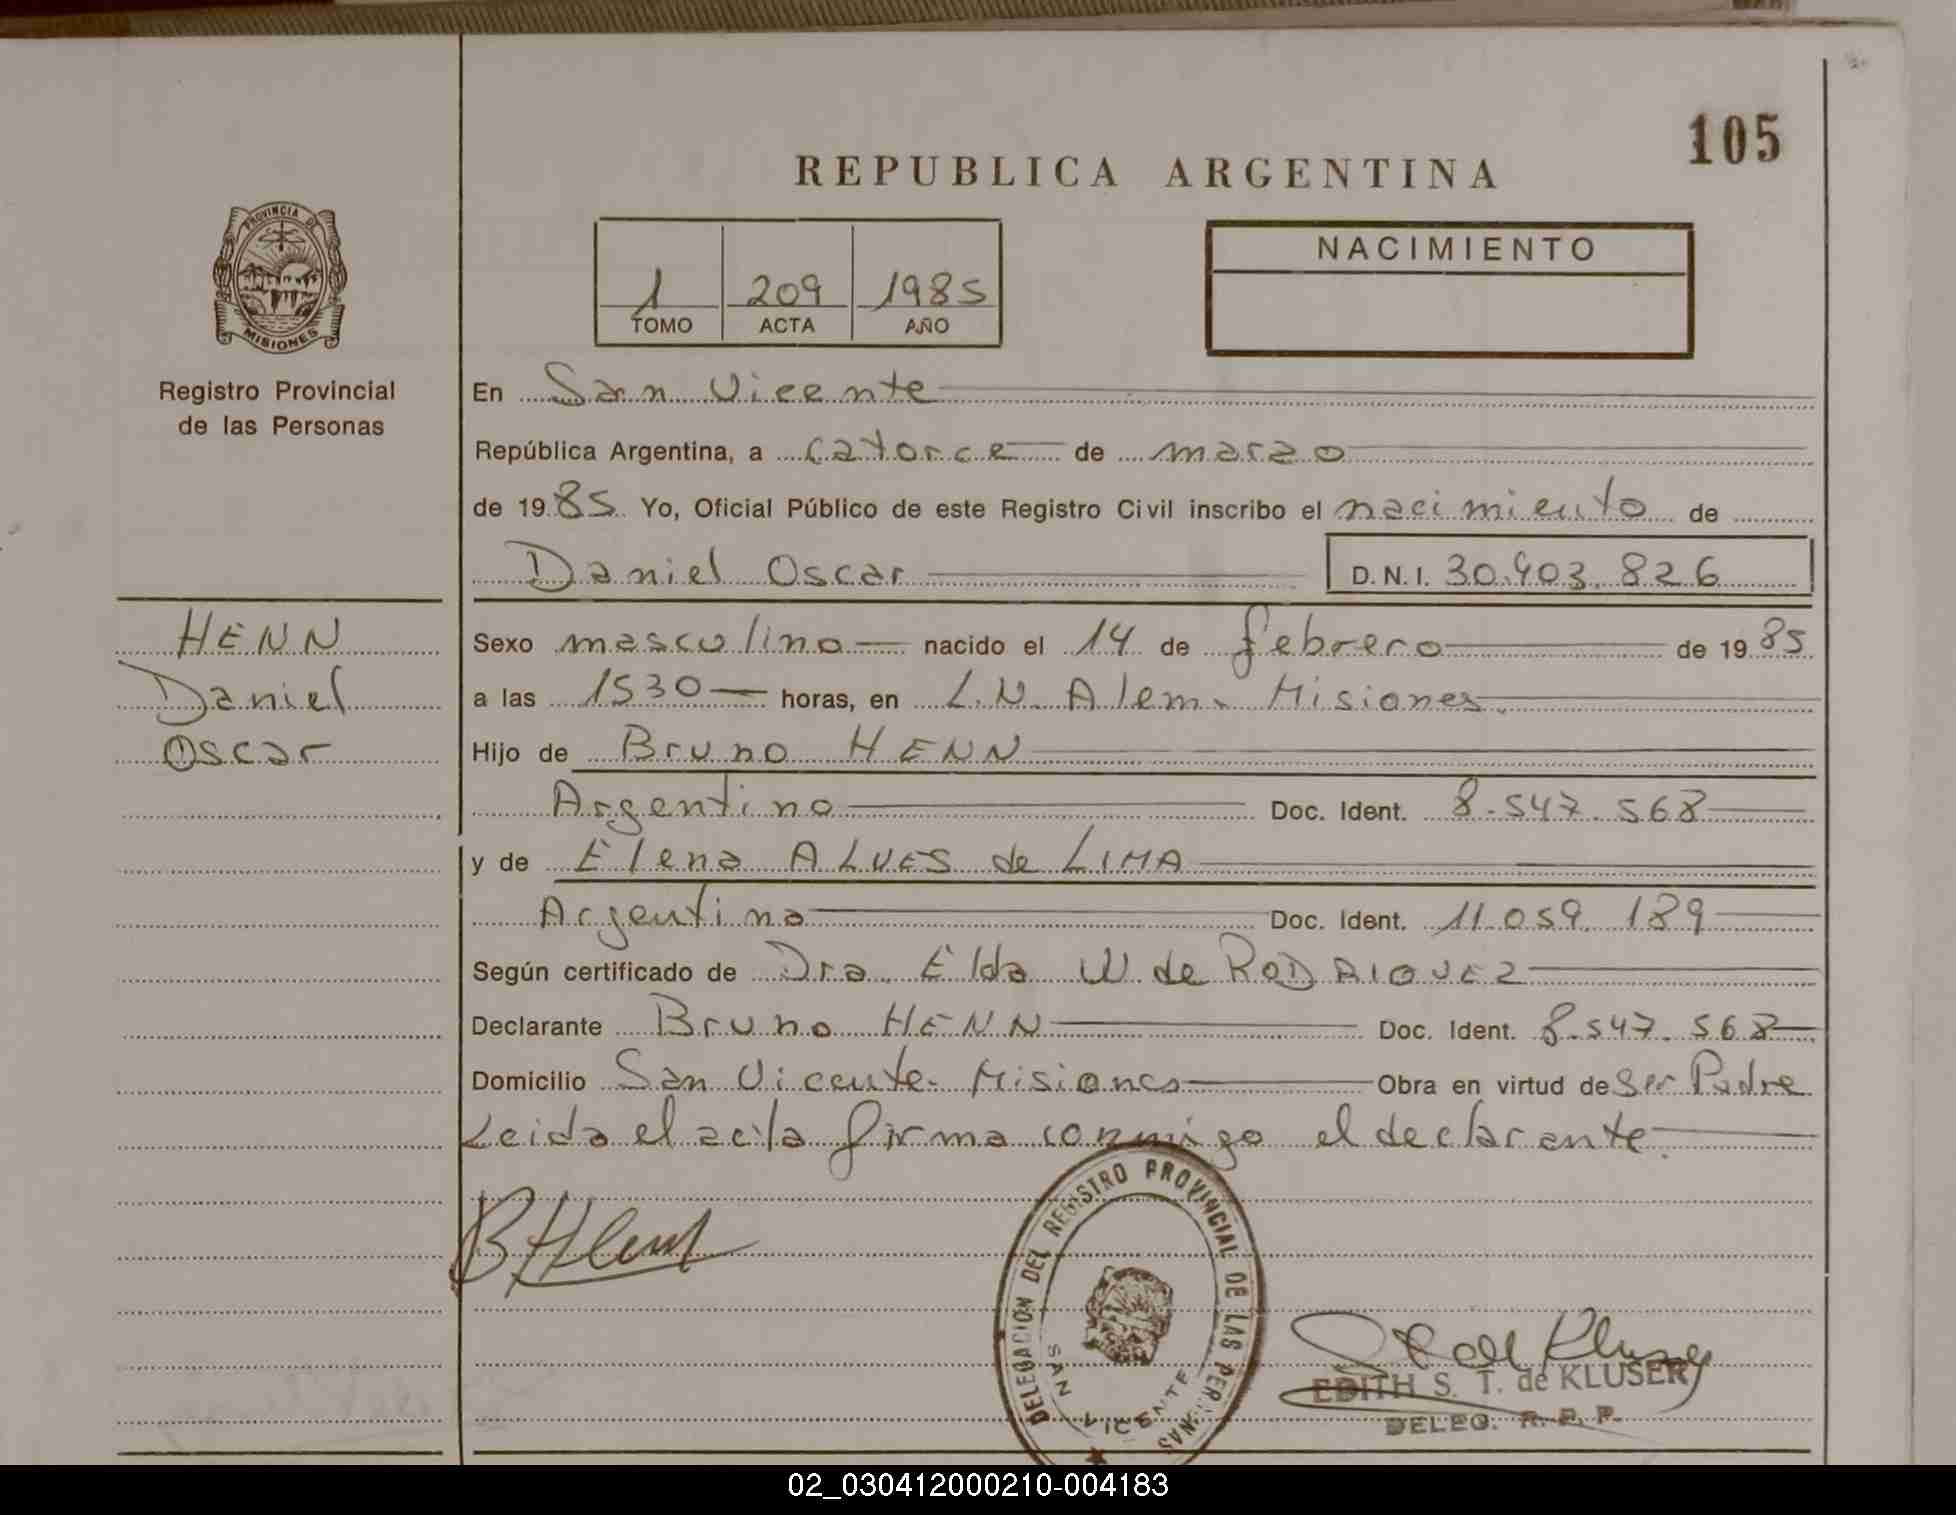 105
REPUBLICA ARGENTINA
PROVINCIA DE
MISIONES
Registro Provincial
de las Personas
1 209 1985
TOMO ACTA AÑO
NACIMIENTO
En San Vicente
República Argentina, a catorce de marzo
de 1985 Yo, Oficial Público de este Registro Civil inscribo el nacimiento de
Daniel Oscar D.N.I. 30.903.826
HENN
Daniel
Oscar
Sexo masculino nacido el 14 de febrero de 1985
a las 1530 horas, en L.N. Alem. Misiones.
Hijo de Bruno HENN
Argentino Doc. Ident. 8.547.568
y de Elena ALVES de LIMA
Argentina Doc. Ident. 11.059.189
Según certificado de Dra. Elda W de RODRIGUEZ
Declarante Bruno HENN Doc. Ident. 8.547.568
Domicilio San Vicente. Misiones Obra en virtud de Ser Padre
Leida el acta firma conmigo el declarante.
B Henn
DELEGACION DEL REGISTRO PROVINCIAL DE LAS PERSONAS
SAN VICENTE
EDITH S. T. de KLUSER
DELEG. R. P. P.
02_030412000210-004183